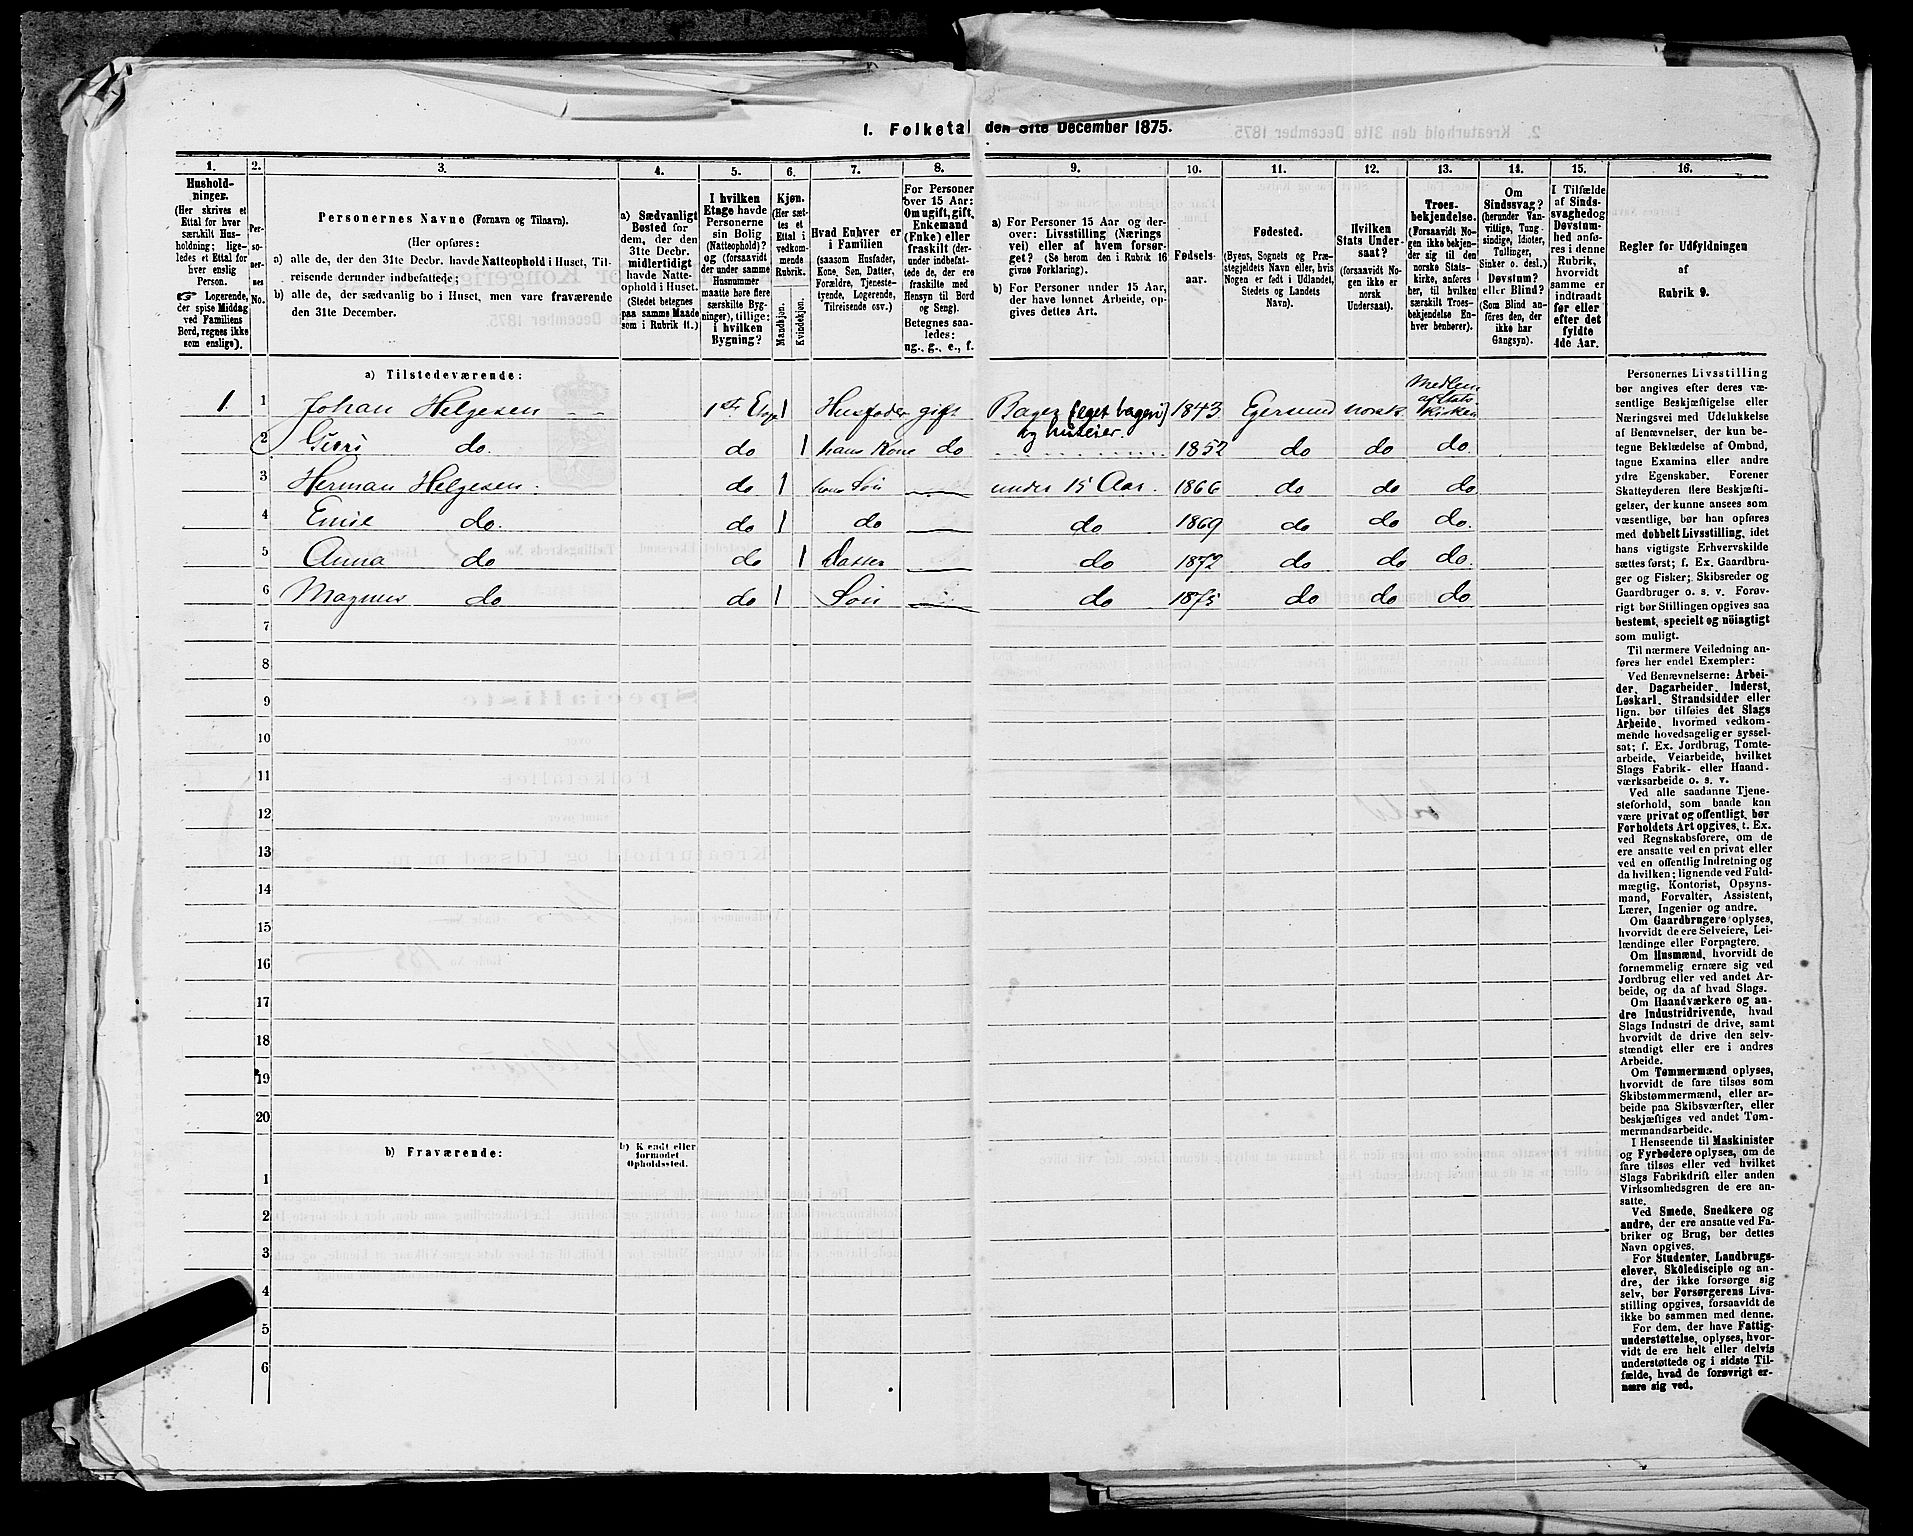 1. Folketal den 31te December 1875.
1. 2. 3. 4. 5. 6. 7. 8. 9. 10. 11. 12. 13. 14. 15. 16.
Hushold-
ninger.
(Her skrives et
Ettal for hver
særskilt Hus-
holdning; lige-
ledes et Ettal for
hver enslig
Person.
☞ Logerende,
der spise Middag
ved Familiens
Bord, regnes ikke
som enslige).
Per-
so-
ner-
nes
No.
Personernes Navne (Fornavn og Tilnavn).
(Her opføres:
a) alle de, der den 31te Decbr. havde Natteophold i Huset, Til-
reisende derunder indbefattede;
b) alle de, der sædvanlig bo i Huset, men vare fraværende
den 31te December.
a) Sædvanligt
Bosted for
dem, der den
31te Decbr.
midlertidigt
havde Natte-
ophold i Huset.
(Stedet betegnes
paa samme Maade
som i Rubrik 11.)
I hvilken
Etage havde
Personerne
sin Bolig
(Natteophold)?
og (forsaavidt
der under samme
Husnummer
maatte høre flere
særskilte Byg-
ninger), tillige:
i hvilken
Bygning?
Kjøn.
(Her sæt-
tes et
Ettal i
vedkom-
mende
Rubrik.
Mandkjøn.
Kvindekjøn.
Hvad Enhver er
i Familien
(saasom Husfader,
Kone, Søn, Datter,
Forældre, Tjeneste-
tyende, Logerende,
Tilreisende osv.)
For Personer
over 15 Aar:
Om ugift, gift,
Enkemand
(Enke) eller
fraskilt (der-
under indbefat-
tede de, der ere
fraskilte med
Hensyn til Bord
og Seng).
Betegnes saa-
ledes:
ug., g., e., f.
a) For Personer 15 Aar og der-
over: Livsstilling (Nærings
vei) eller af hvem forsør-
get? (Se herom den i Rubrik 16
givne Forklaring).
b) For Personer under 15 Aar,
der have lønnet Arbeide, op-
gives dettes Art.
Fødsels-
aar.
Fødested.
(Byens, Sognets og Præ-
stegjeldets Navn eller, hvis
Nogen er født i Udlandet,
Stedets og Landets
Navn).
Hvilken
Stats Under-
saat?
(forsaavidt No-
gen ikke er
norsk
Undersaat).
Troes-
bekjendelse.
(Forsaavidt No-
gen ikke bekjen-
der sig til den
norske Stats-
kirke, anføres
her, til hvilken
særskilt Troes-
bekjendelse En-
hver henhører).
Om
Sindssvag?
(herunder Van-
vittige, Tung-
sindige, Idioter,
Tullinger,
Sinker o. desl.)
Døvstum?
eller Blind?
(Som Blind an-
føres den, der
ikke har
Gangsyn).
I Tilfælde
af Sinds-
svaghed og
Døvstum-
hed anfø-
res i denne
Rubrik,
hvorvidt
samme er
indtraadt
før eller
efter det
fyldte
4de Aar.
Regler for Udfyldningen
af
Rubrik 9.
a) Tilstedeværende:
1 1 Johan Helgesen 1ste Etage 1 Husfader gift Bager (eget bageri) og huseier. 1843 Egersund norsk. Medlem af Statskirken
2 Gurri do. do 1 hans Kone do 1852 do do do.
3 Herman Helgesen. do. 1 hans Søn under 15 Aar. 1866 do do do
4 Emil do. do 1 do do 1869 do do do.
5 Anna do do 1 Datter do 1872 do do do.
6 Magnus do do 1 Søn do 1875 do do do
7
8
9
10
11
12
13
14
15
16
17
18
19
20
b) Fraværende:
b) Kjendt eller
formodet
Opholdssted.
1
2
3
4
5
6
Personernes Livsstilling
bør angives efter deres væ-
sentlige Beskjæftigelse eller
Næringsvei med Udelukkelse
af Benævnelser, der kun be-
tegne Beklædelse af Ombud,
tagne Examina eller andre
ydre Egenskaber. Forener
Skatteyderen flere Beskjæfti-
gelser, der kunne ansees som
væsentlige, bør han opføres
med dobbelt Livsstilling, idet
hans vigtigste Erhvervskilde
sættes først; f. Ex. Gaardbru-
ger og Fisker; Skibsreder og
Gaardbruger o. s. v. Forøv-
rigt bør Stillingen opgives saa
bestemt, specielt og nöiagtigt
som muligt.
Til nærmere Veiledning an-
føres her endel Exempler:
Ved Benævnelserne: Arbei-
der, Dagarbeider, Inderst,
Løskarl, Strandsidder eller
lign. bør tilføies det Slags
Arbeide, hvormed vedkom-
mende hovedsagelig er syssel-
sat; f. Ex. Jordbrug, Tomte-
arbeide, Veiarbeide, hvilket
Slags Fabrik- eller Haand-
værksarbeide o. s. v.
Ved alle saadanne Tjene-
steforhold, som baade kan
være privat og offentligt, bør
Forholdets Art opgives, t. Ex.
ved Regnskabsførere, om de
ere ansatte ved en privat eller
ved en offentlig Indretning og
da hvilken; lignende ved Fuld-
mægtig, Kontorist, Opsyns-
mand, Forvalter, Assistent,
Lærer, Ingeniør og andre.
Om Gaardbrugere oplyses,
hvorvidt de ere Selveiere, Lei-
lændinge eller Forpagtere.
Om Husmænd, hvorvidt de
fornemmelig ernære sig ved
Jordbrug eller ved andet Ar-
beide, og da af hvad Slags.
Om Haandværkere og an-
dre Industridrivende, hvad
Slags Industri de drive, samt
hvorvidt de drive den selv-
stændigt eller ere i andres
Arbeide.
Om Tømmermænd oplyses,
hvorvidt de fare tilsøs som
Skibstømmermænd, eller ar-
beide paa Skibsværfter, eller
beskjæftiges ved andet Tøm-
mermandsarbeide.
I Henseende til Maskinister
og Fyrbødere oplyses, om de
fare tilsøs eller ved hvilket
Slags Fabrikdrift eller anden
Virksomhedsgren de ere an-
satte.
Ved Smede, Snedkere og
andre, der ere ansatte ved Fa-
briker og Brug, bør dettes
Navn opgives.
For Studenter, Landbrugs-
elever, Skoledisciple og an-
dre, der ikke forsørge sig
selv, bør Forsørgerens Livs-
stilling opgives, forsaavidt de
ikke bo sammen med denne.
For dem, der have Fattig-
understøttelse, oplyses, hvor-
vidt de ere helt eller delvis
understøttede og i sidste Til-
fælde, hvad de forøvrigt er-
nære sig ved.